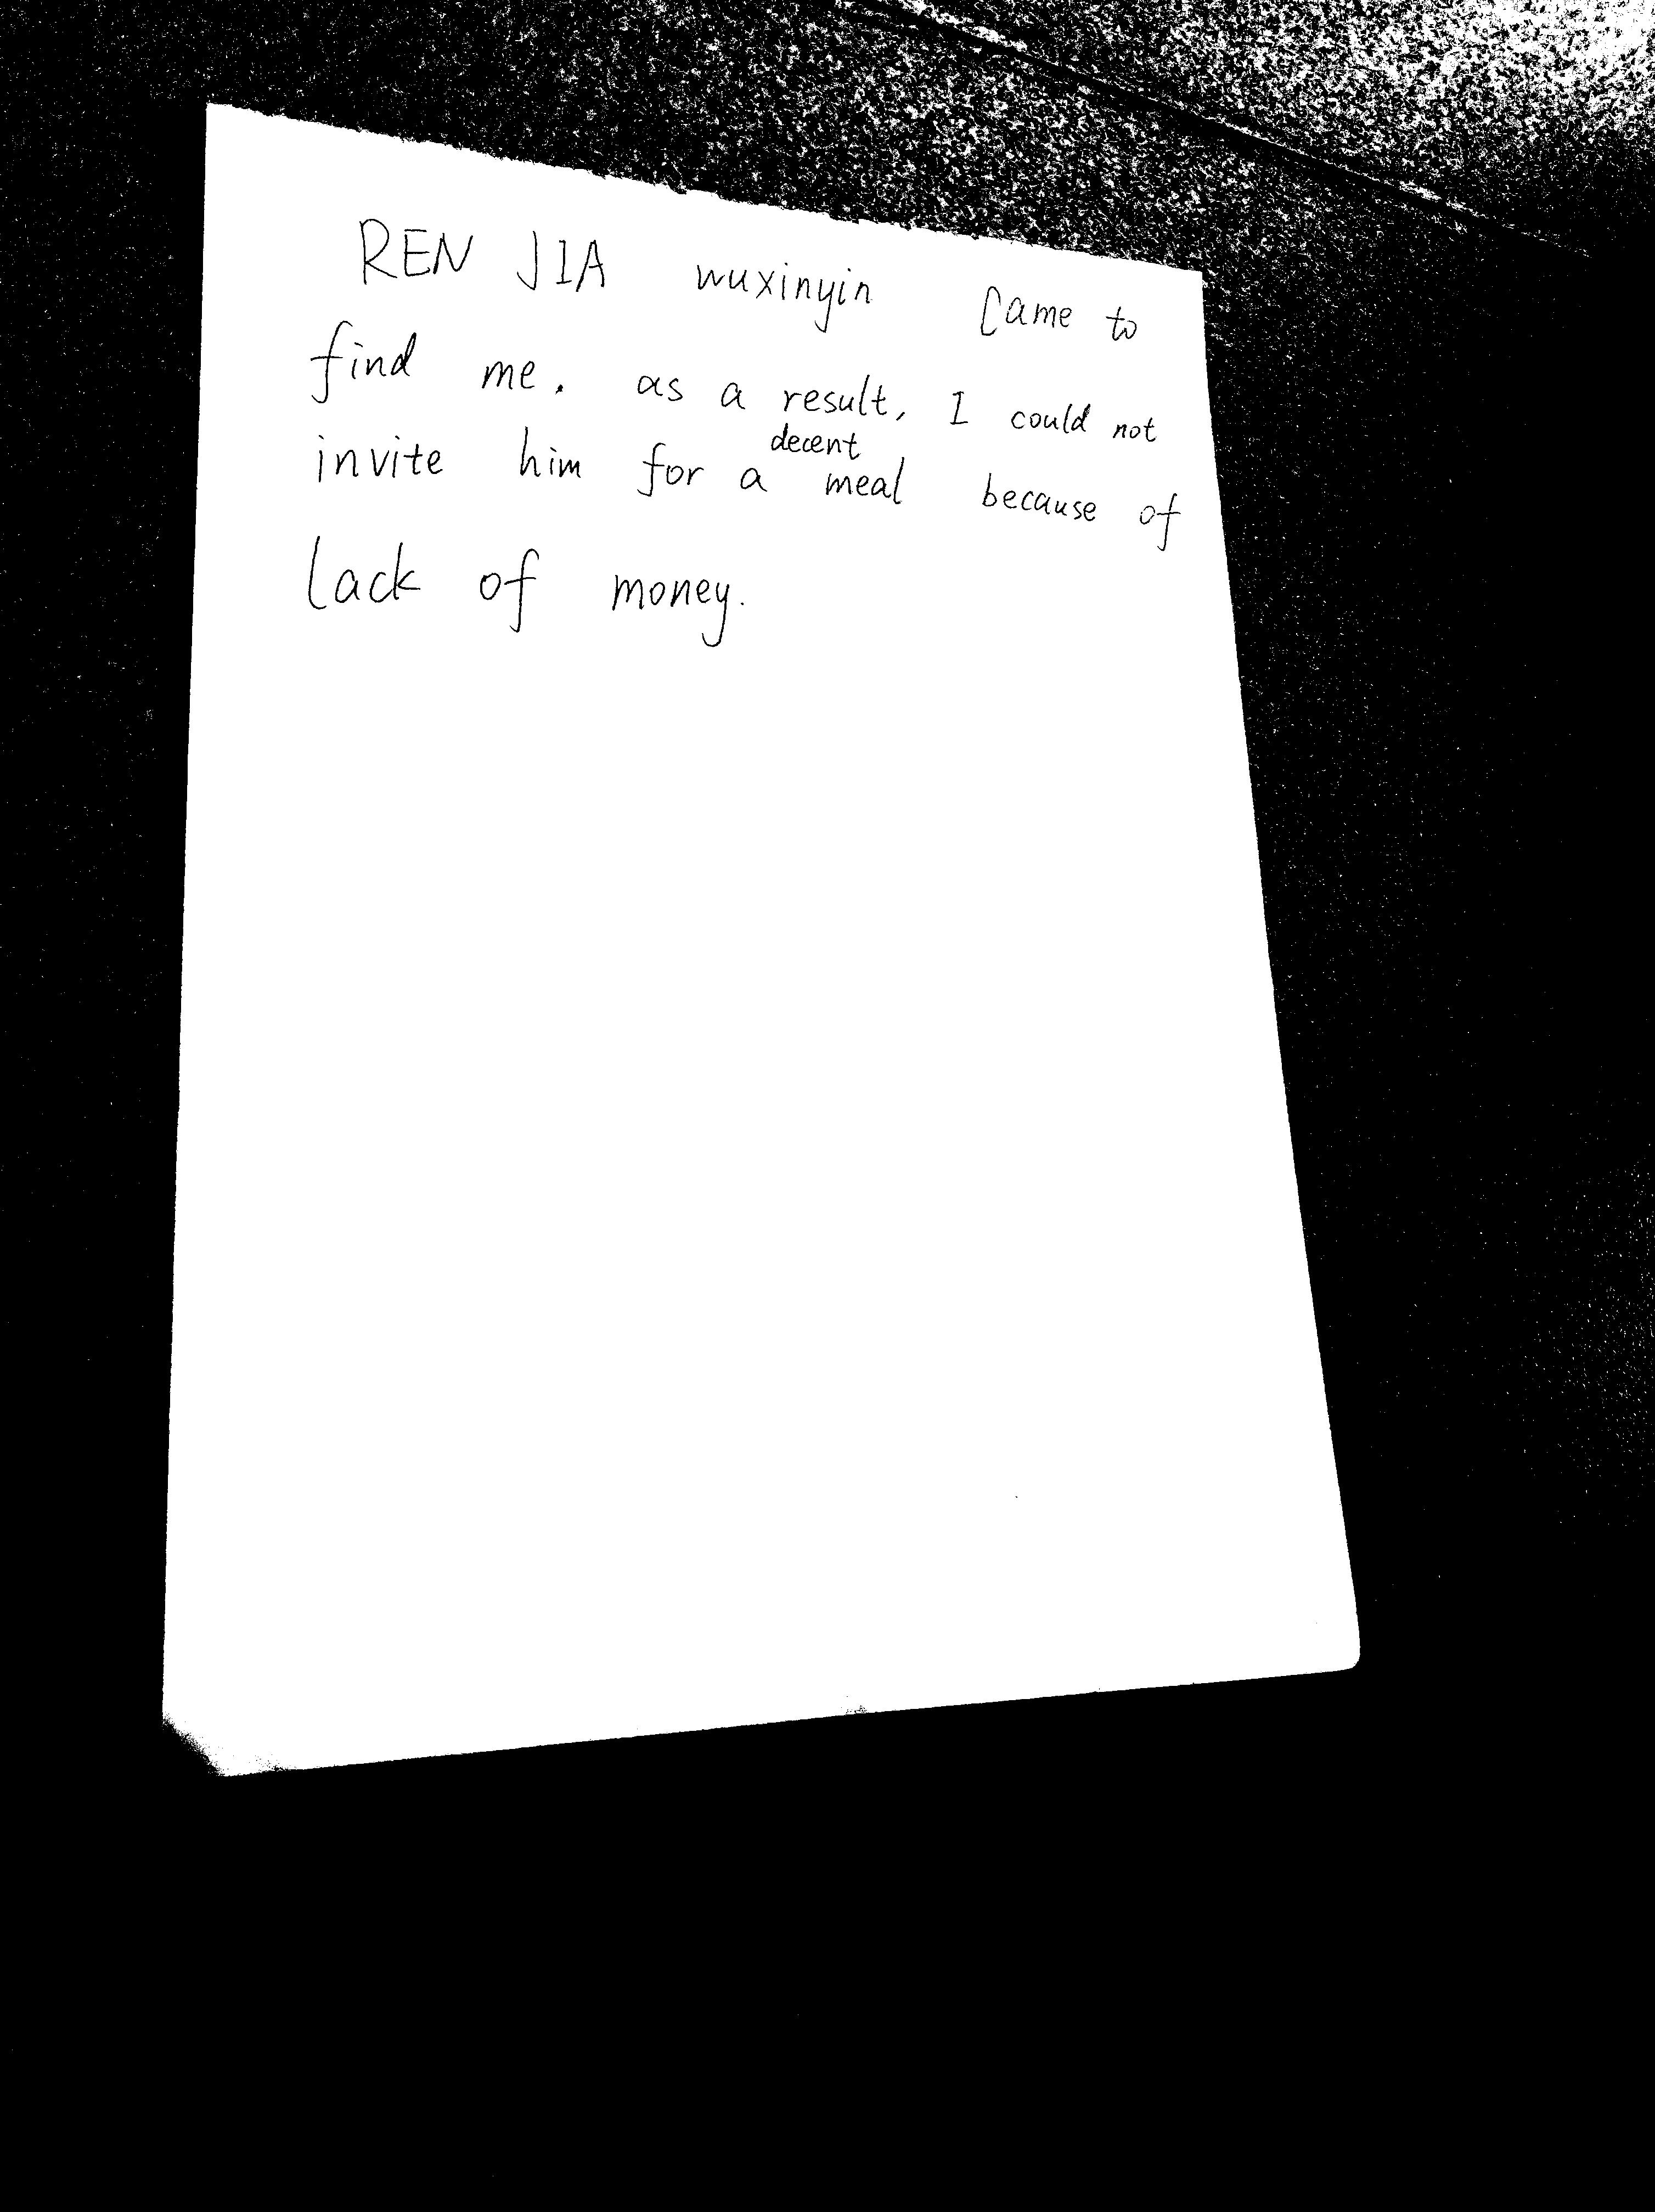 REN JIA wuxinyin came to
find me. as a result, I could not
invite him for a decent meal because of
lack of money.